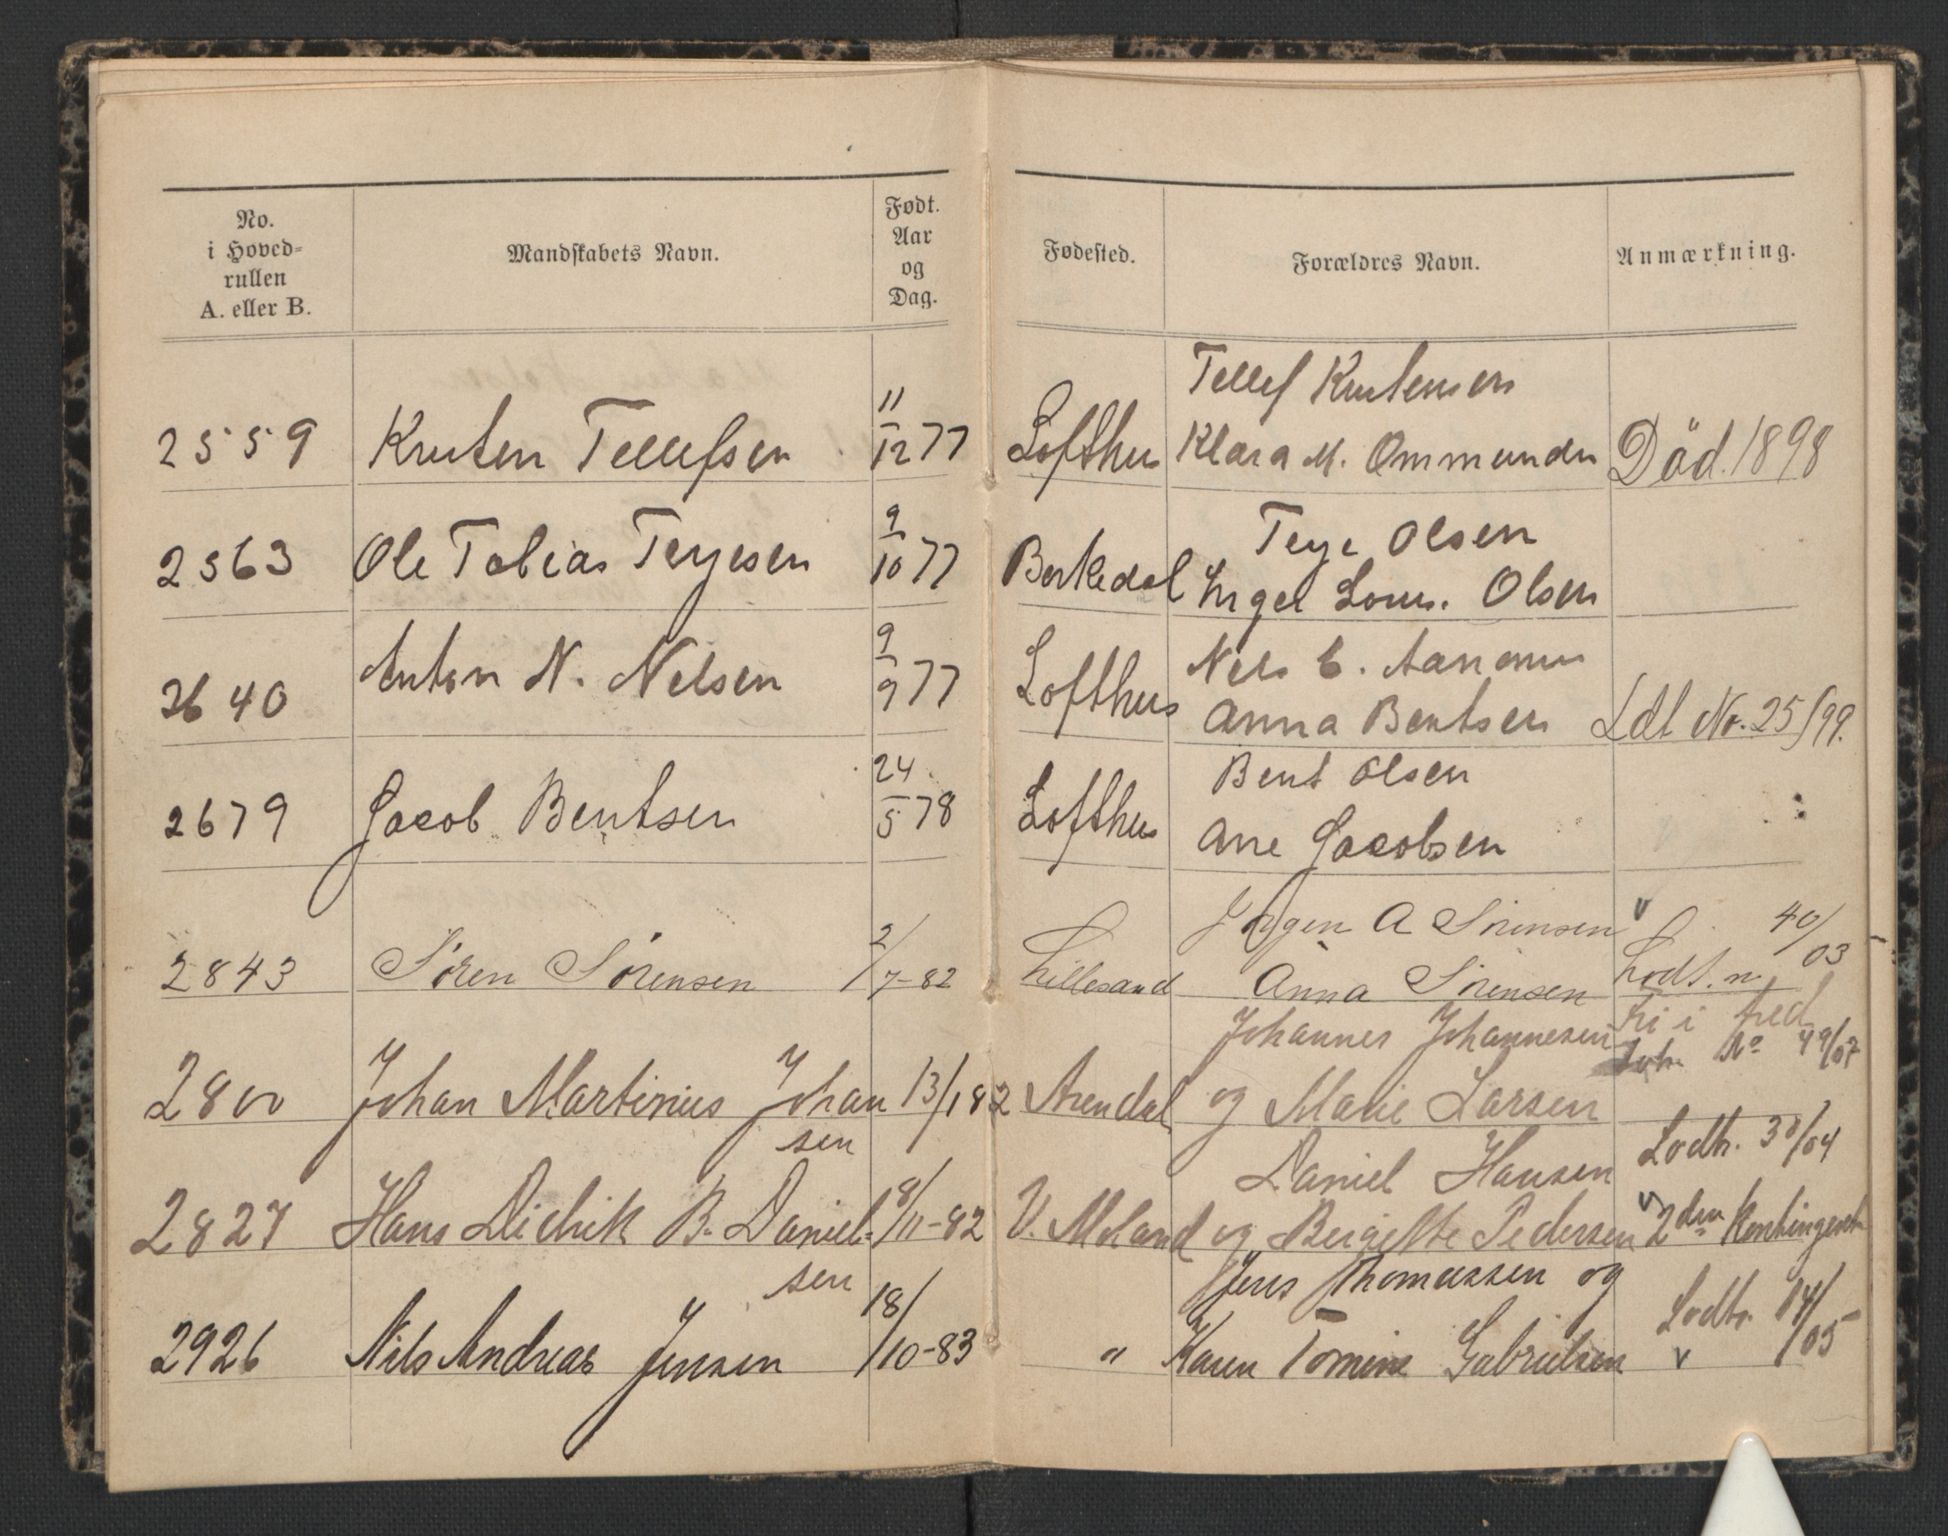 No.
i Hoved-
rullen
A. eller B.
Mandskabets Navn.
Født.
Aar
og
Dag.
Fødested.
Forældres Navn.
Anmærkning.
Tellef Knutensen
2559 Knuten Tellefsen 11/12 77 Lofthus Klara M. Ommunds Död. 1898
Terje Olsen
2563 Ole Tobias Terjesen 9/10 77 Borkedal Inger Olsen
Nels
2640 Anton N. Nelsen 9/9 77 Lofthus Anna Bentsen Ldt No. 25/99.
Bent Olsen
2679 Jacob Bentsen 24/5 78 Lofthus Ane Jacobsen
Jörgen A Sörensen 40/03
2843 Sören Sörensen 2/7-82 Lillesand Anna Sörensen Lodt. n.
Johannes Johannesen fri i fred
No 49/07
2800 Johan Martinius Johan 13/1 82 Arendal og Marie Larsen
sen
Daniel Hansen Lodtr. 30/04
2827 Hans Didrik B. Daniel- 8/11-82 V. Moland og Birgitte Pedersen 2den Kontingent
sen
Jens Thomassen og
2926 Nils Andreas Jensen 18/10-83 " Karen Tomine Gabrielsen Lodtr. 14/05